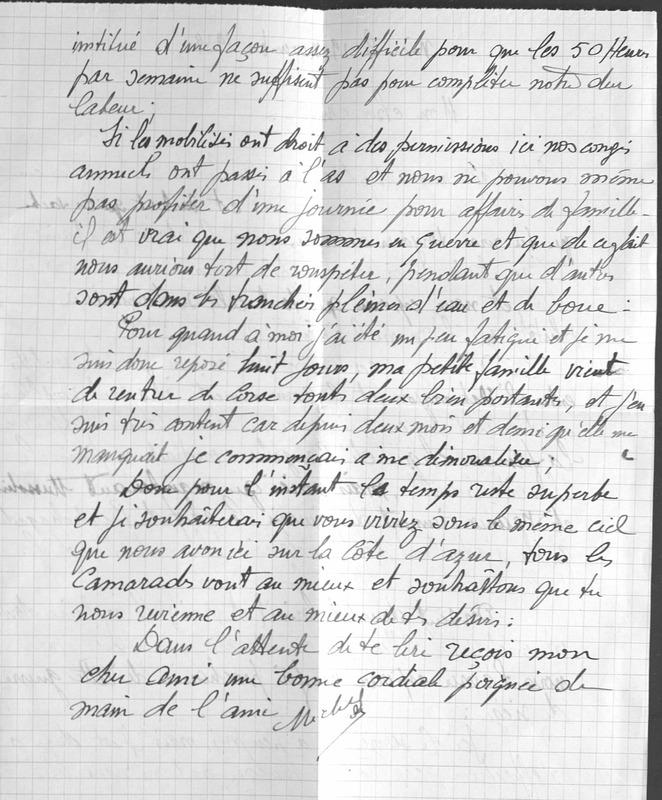 institué d'une façon assez difficile pour que les 50 Heures
par semaine ne suffisent pas pour compléter notre dur
labeur;
Si les mobilisés ont droit à des permissions ici nos congés
annuels ont passés à l'as et nous ne pouvons même
pas profiter d'une journée pour affaires de famille.
il est vrai que nous sommes en Guerre et que de ce fait
nous aurions tort de rouspéter, pendant que d'autres
sont dans les tranchés pleines d'eau et de boue:
Pour quand à moi j'ai été un peu fatigué et je me
suis donc reposé huit jours, ma petite famille vient
de rentrer de Corse touts deux bien portantes, et j'en
suis très content car depuis deux mois et demi qu'elle me
manquait je commençais à me démoraliser;
Donc pour l'instant le temps reste superbe
et je souhaiterai que vous viviez sous le même ciel
que nous avon ici sur la Côte d'azur, tous les
Camarades vont au mieux et souhaîtons que tu
nous revienne et au mieux de ts désirs:
Dans l'attente de te lire reçois mon
cher ami une bonne cordiale poignée de
main de l'ami